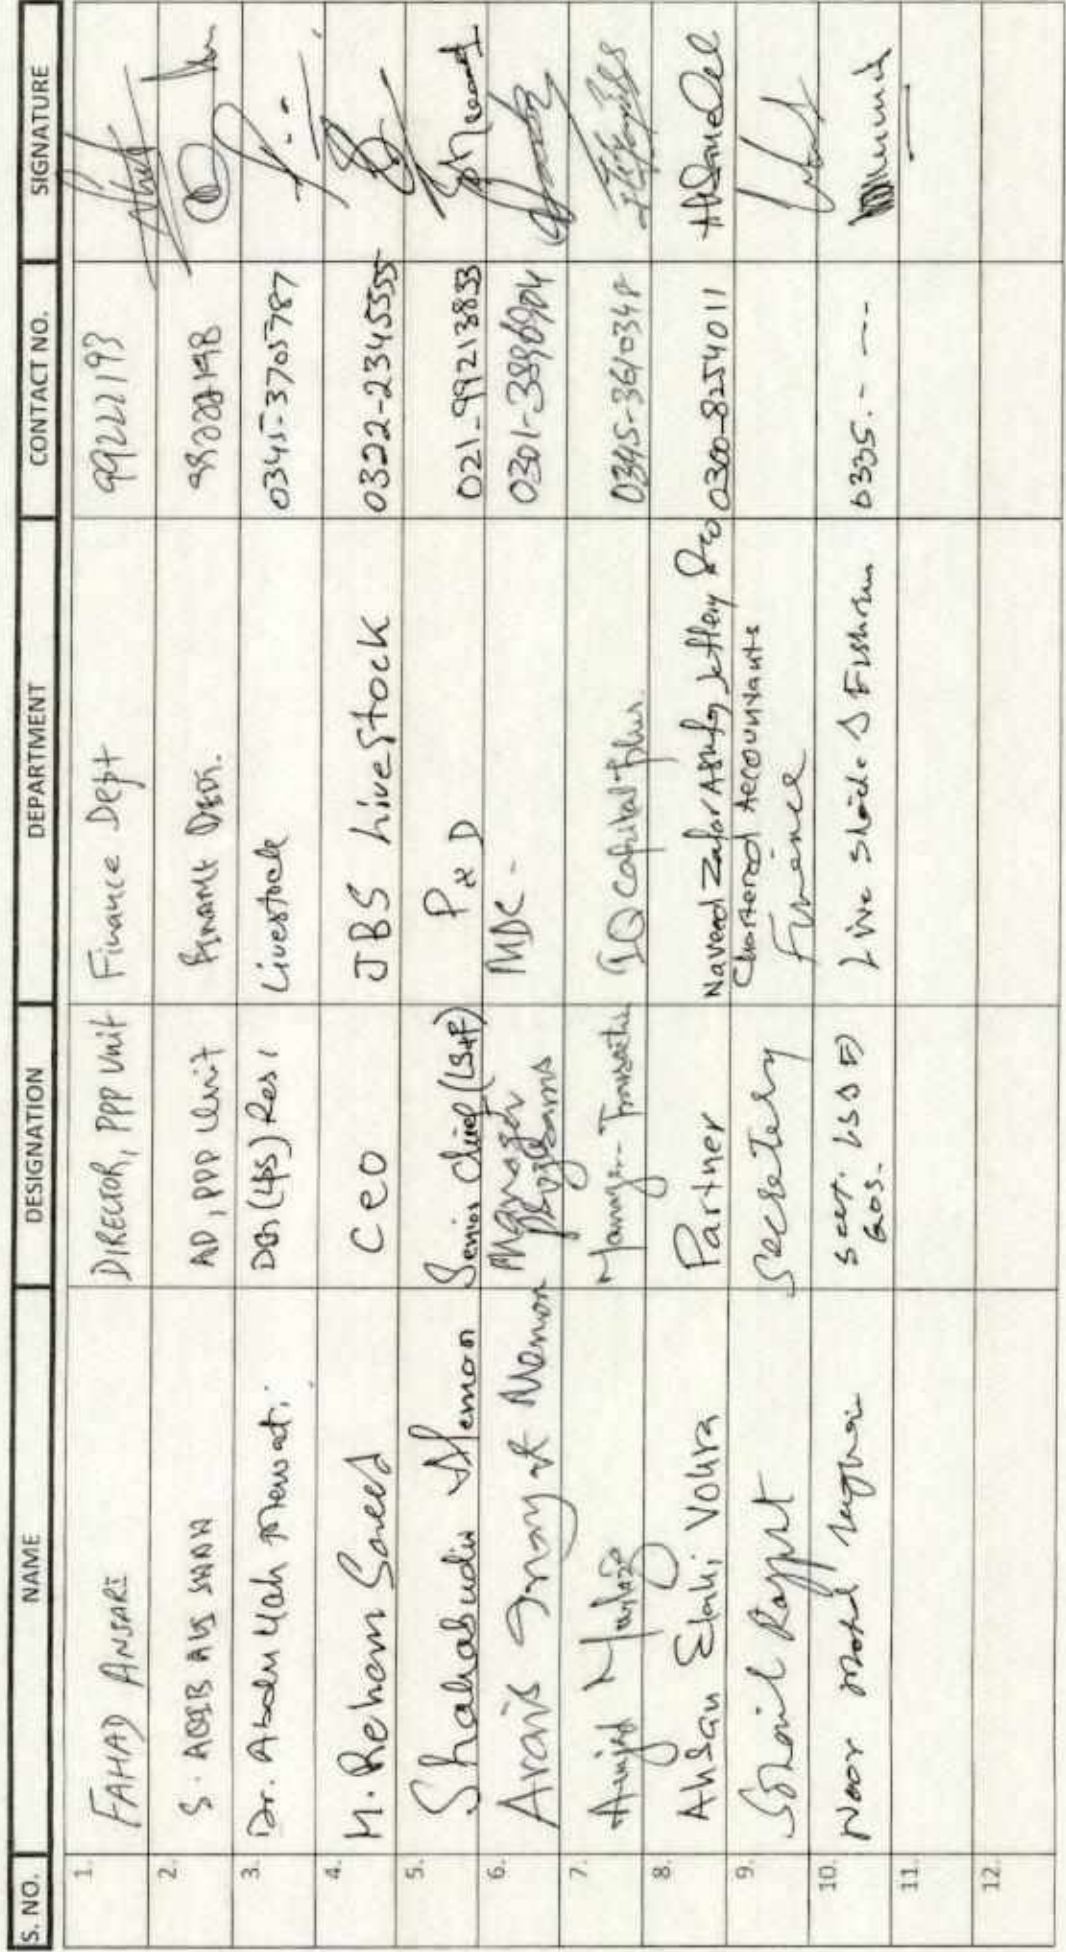 S. NO. NAME DESIGNATION DEPARTMENT CONTACT NO. SIGNATURE
1. FAHAD ANSARI DIRECTOR, PPP Unit Finance Dept 99222193
2. S. AQIB ALI SHAH AD, PPP Unit Finance Deptt.
3. Dr. Abdullah Mewati. (LPS) Res 1 Livestock 0345-3705787
4. M. Reham Saeed CEO JBS Livestock 0322-2345555
5. Shahabudin Memon Senior Chief (LS&F) P & D 021-99213833
6. Arais Memon Manager Programs MDC -
7. Amjad Manager- IQ Capital Plus. 0345-3610348
8. Ahsan Elahi Vohra Partner Naveed Zafar Ashfaq Jaffery & Co 0300-8254011
Chartered Accountants
9. Sohail Rajput Secretary Finance
10. Noor Mohd Secy. Live Stock & 0335. - --
GOS.
11.
12.